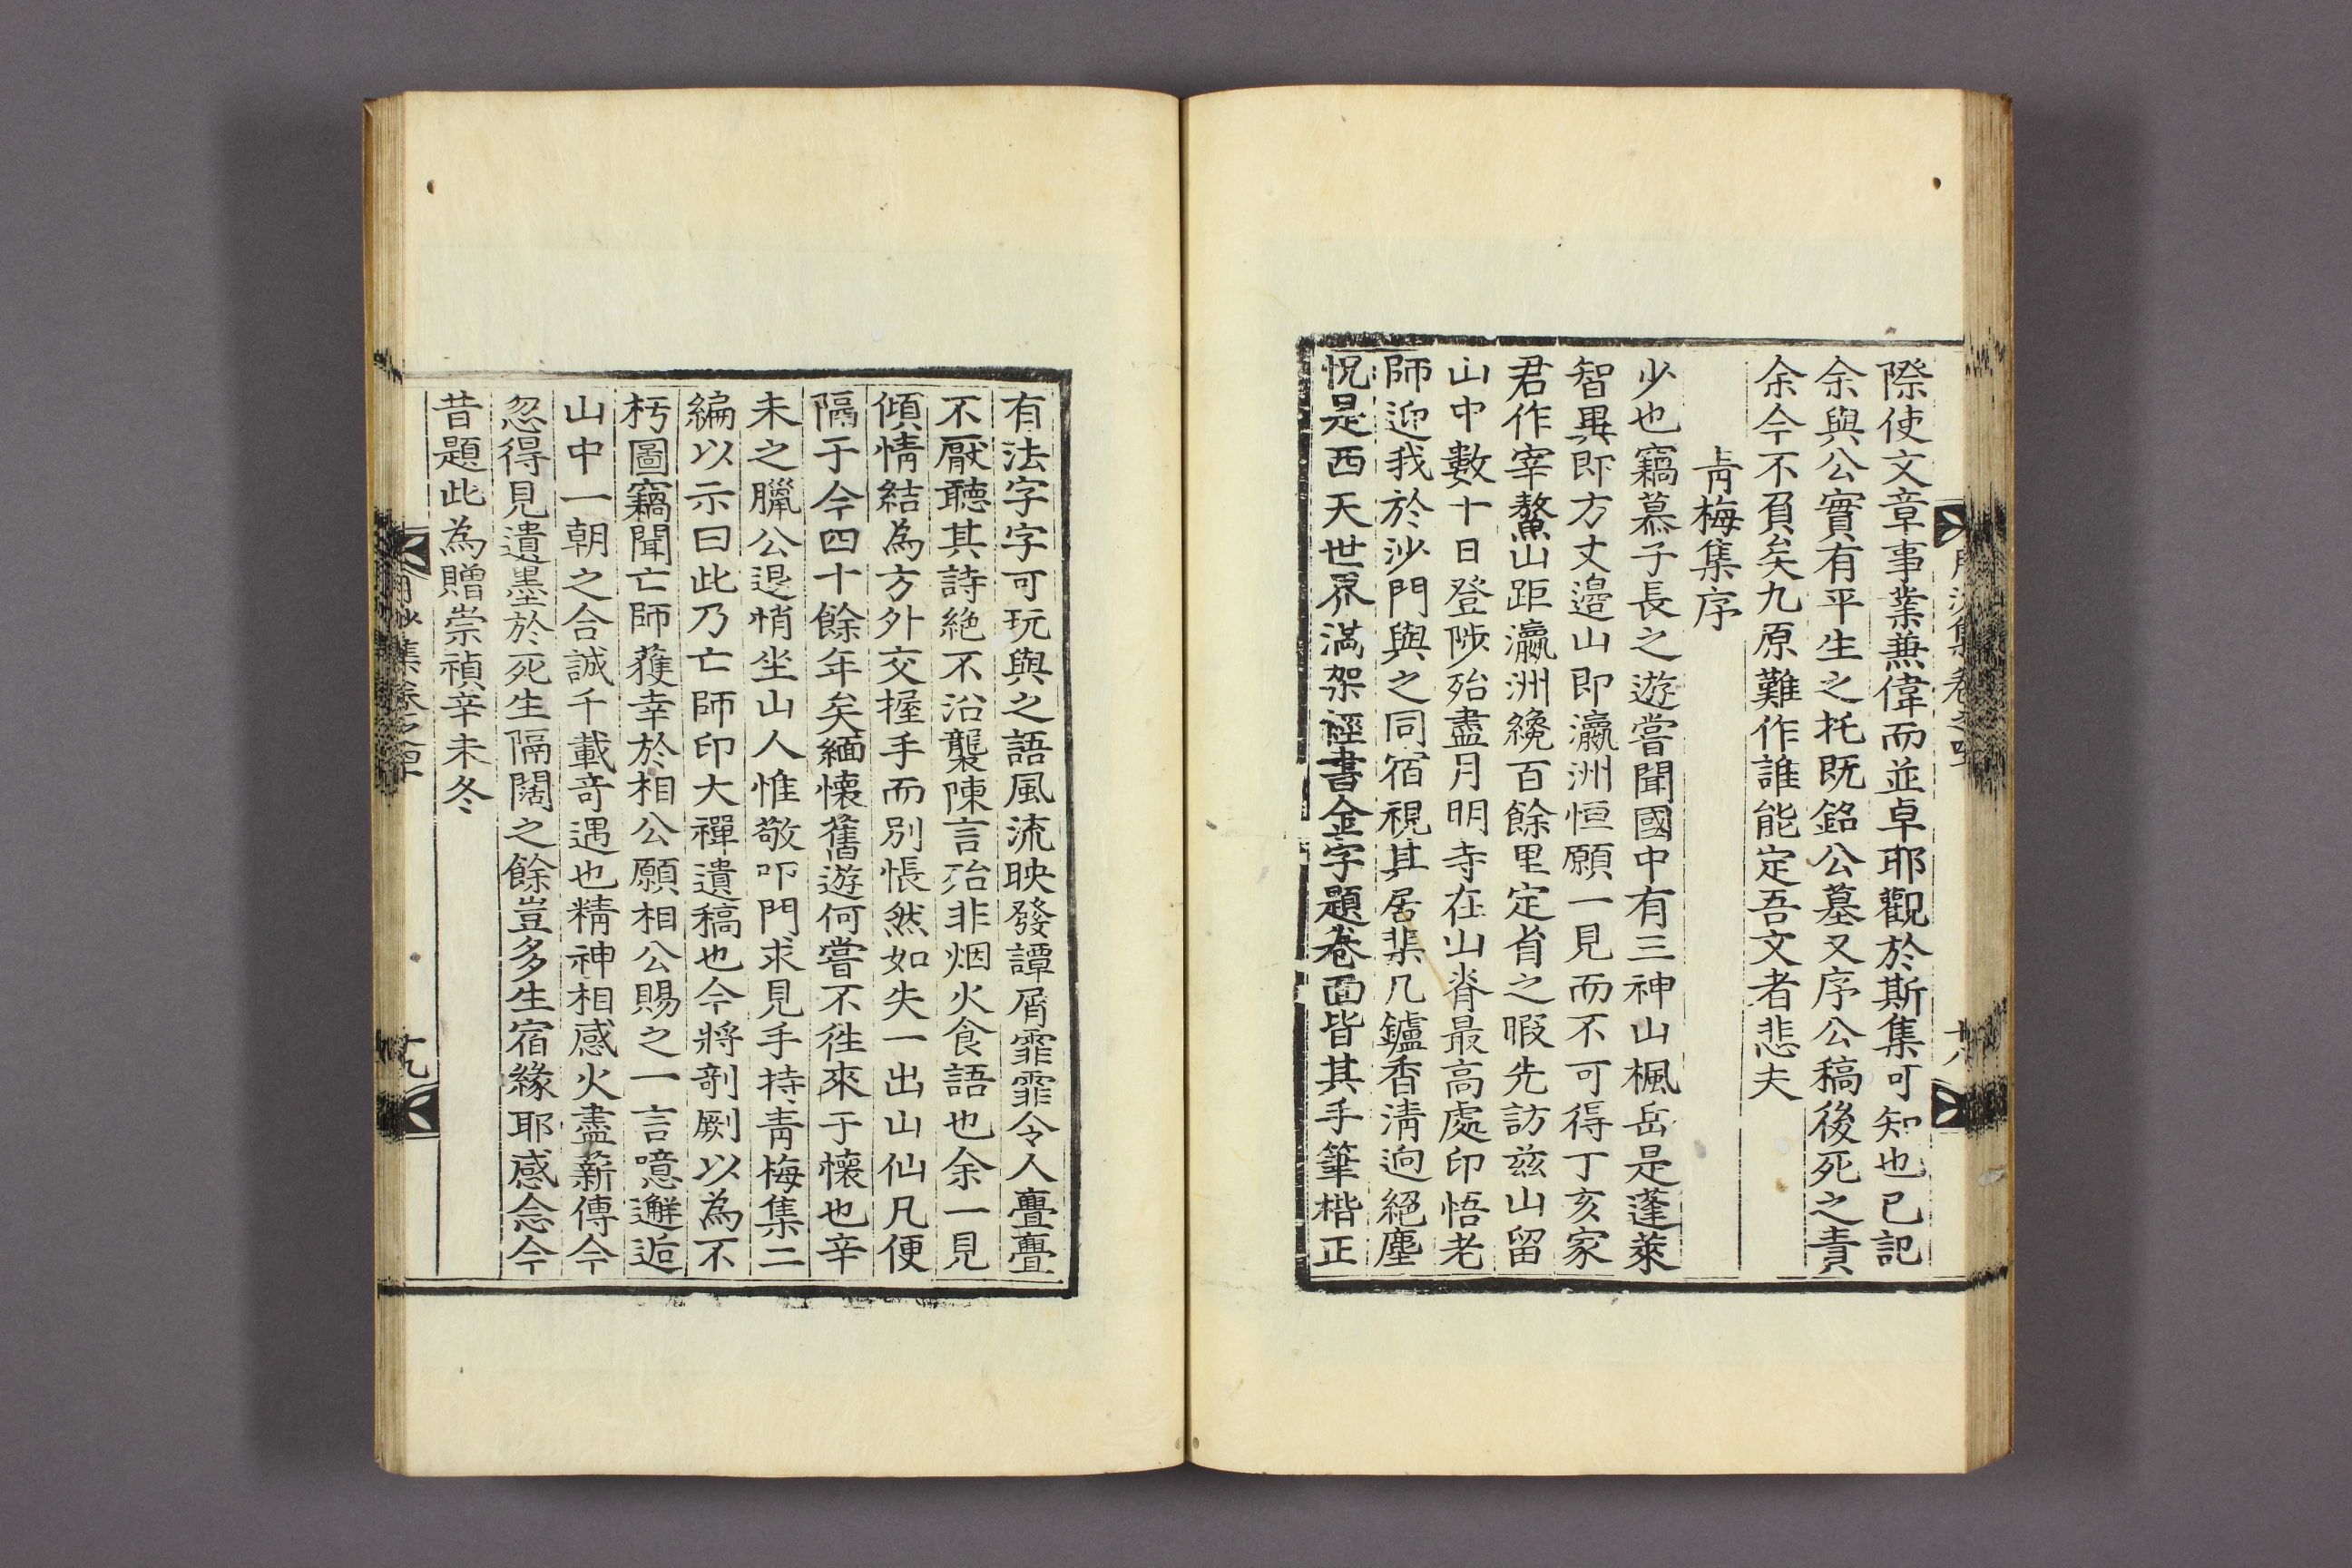 際使文章事業兼偉而並卓耶觀於斯集可知也已記
余與公實有平生之托既銘公墓又序公稿後死之責
余今不負矣九原難作誰能定吾文者悲夫
靑梅集序
少也竊慕子長之遊嘗聞國中有三神山楓岳是蓬萊
智異即方丈邉山即瀛洲恒願一見而不可得丁亥家
君作宰鰲山距瀛洲纔百餘里定省之暇先訪茲山留
山中數十日登陟殆盡月明寺在山脊最高處印悟老
師迎我於沙門與之同宿視其居棐几鑪香淸逈絕塵
怳是西天世界滿架經書金字題卷面皆其手筆楷正
有法字字可玩與之語風流映發譚屑霏霏令人亹亹
不厭聽其詩絕不沿襲陳言殆非烟火食語也余一見
傾情結為方外交握手而別悵然如失一出山仙凡便
隔于今四十餘年矣緬懷舊遊何嘗不徃來于懷也辛
未之臘公退悄坐山人惟敬叩門求見手持靑梅集二
編以示曰此乃亡師印大禪遺稿也今將剞劂以為不
朽圖竊聞亡師蒦幸於相公願相公賜之一言噫邂逅
山中一朝之合誠千載奇遇也精神相感火盡薪傳今
忽得見遺墨於死生隔闊之餘豈多生宿緣耶感念今
昔題此為贈崇禎辛未冬